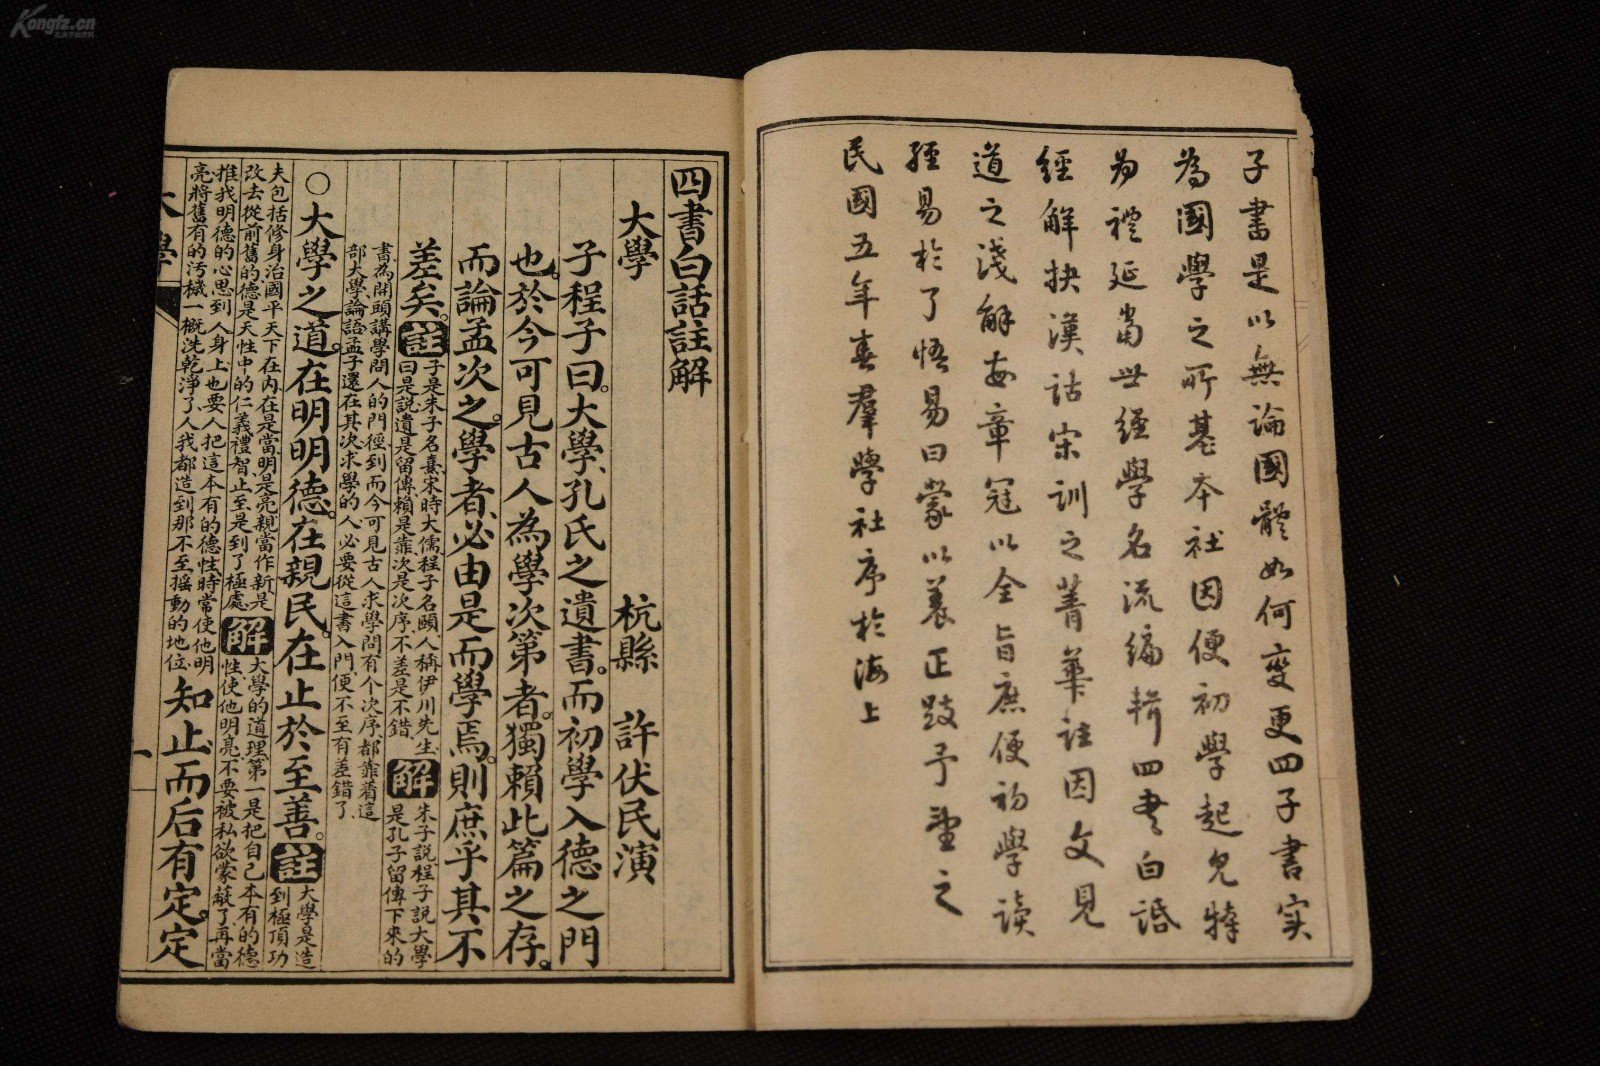 子書是以無論國體如何變更四子書实
為國學之所基本社因便初學起見特
為禮延當世經學名流編輯四書白話
經解抉漢詁宋訓之菁華註因文見
道之淺解每章冠以全旨庶便初學讀
經易於了悟易曰蒙以養正跂予望之
民國五年春羣學社序於海上
四書白話註解
大學
杭縣 許伏民演
子程子曰。大學、孔氏之遺書。而初學入德之門
也。於今可見古人為學次第者。獨賴此篇之存。
而論孟次之。學者、必由是而學焉。則庶乎其不
差矣。註子是朱子名熹、宋時大儒、程子名頤、人稱伊川先生、
曰是說、遺是留傳、賴是靠、次是次序、不差是不錯、解朱子說、程子說大學
是孔子留傳下來的
書、為開頭講學問人的門徑、到而今可見古人求學問、有个次序、都靠着這
部大學、論語孟子還在其次、求學的人、必要從這書入門、便不至有差錯了、
○大學之道。在明明德。在親民。在止於至善。註大學是造
到極頂功
夫、包括修身治國平天下在內、在是當、明是亮、親當作新、是
改去從前舊的、德是天性中的仁義禮智、止至是到了極處、解大學的道理、第一是把自己本有的德
性、使他明亮、不要被私欲蒙蔽了、再當
推我明德的心思、到人身上、也要人把這本有的德性、時常使他明
亮、將舊有的汚穢、一概洗乾淨了、人我都造到那不至搖動的地位、知止而后有定。定
大學
一
Kongfz.cn